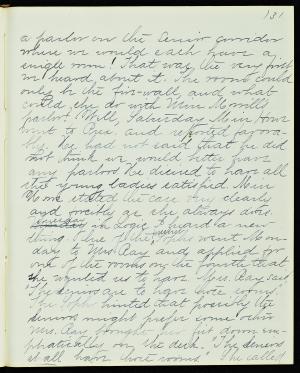 131
a parlor on the Senior corridor
where we would each have a
single room! That was the very first
we heard about it. The rooms could
only be the fire-wall, and what
could she do with Miss Morrill's
parlor. Well, Saturday Miss Howe
went to Pres. and reported favora-
bly. he had not said that he did
not think we would better have
any parlors he desired to have all
the young ladies satisfied. Miss
Howe stated the case very clearly
and forcibly as she always does.
in Logic I heard a new
thing. One of the Sophs went Mon-
day to Mrs. Ray and applied for
one of the rooms on the fourth that
she wanted us to have. Mrs. Ray said,
"The seniors are to have those rooms."
The Soph hinted that possibly the
seniors might prefer some others
Mrs. Ray brought her fist down em-
phatically on the desk. "The seniors
shall have those rooms." She called